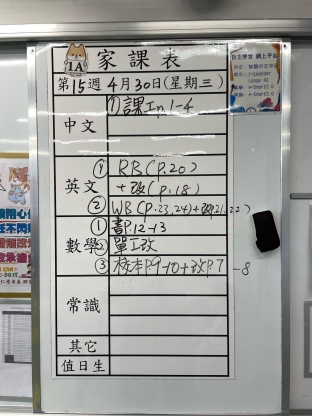 1A 家課表
第15週 4月30日(星期三)
中文 ① 課工p.1-4
英文 ① RB(p.20)
+改(p.18)
② WB(p.23,24)+改p.21,22)
數學 ① 書P.12-13
② 單工改
③ 校本P.9-10+改P.7-8
常識
其它
值日生
自主學習 網上平台